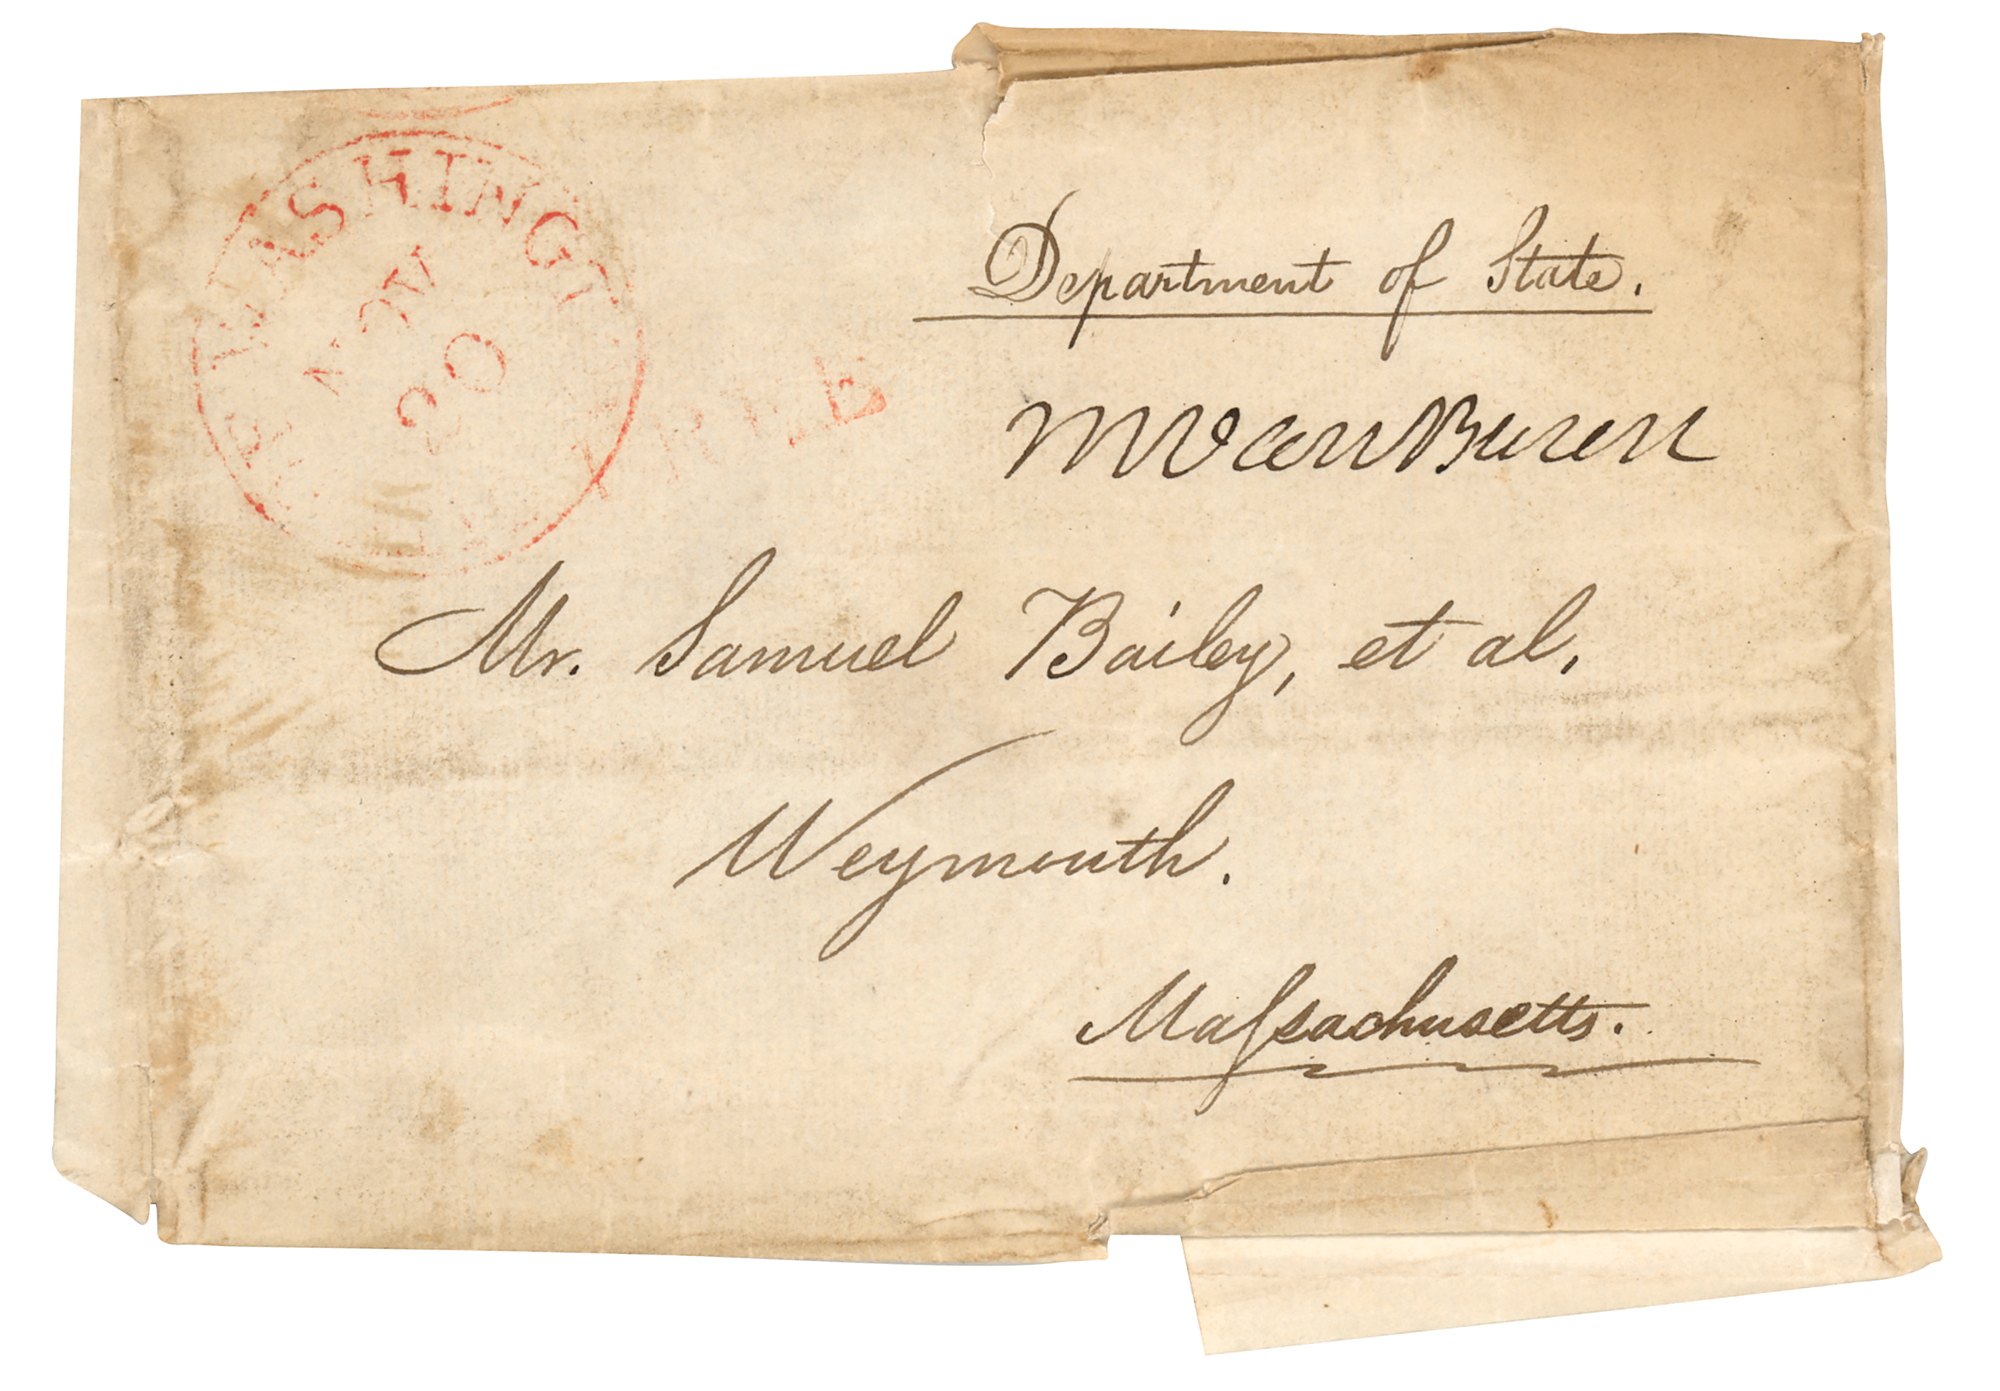 WASHINGT
NOV
20
FREE
Department of State.
MVanBuren
Mr. Samuel Bailey, et al,
Weymouth.
Maſsachusetts.